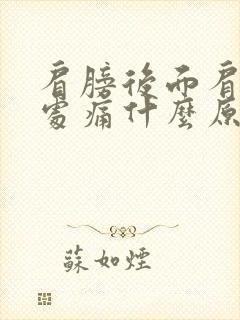 肩膀後而肩
處痛什麼原
蘇如煙